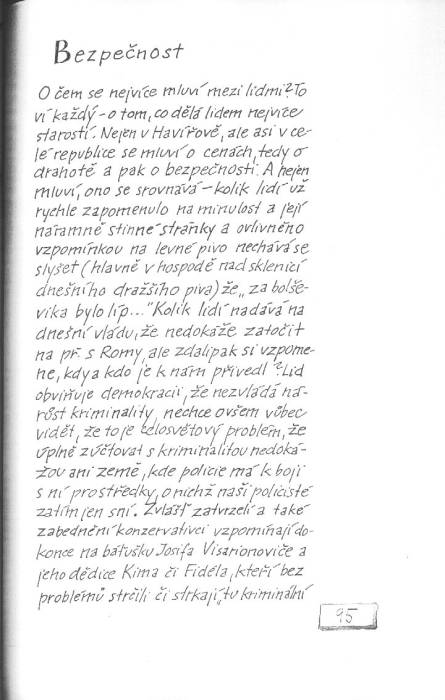 Bezpečnost
O čem se nejvíce mluví mezi lidmi? To
ví každý – o tom, co dělá lidem nejvíce
starostí. Nejen v Havířově, ale asi v ce-
lé republice se mluví o cenách, tedy o
drahotě a pak o bezpečnosti. A nejen
mluví, ono se srovnává – kolik lidí už
rychle zapomenulo na minulost a její
náramně stinné stránky a ovlivněno
vzpomínkou na levné pivo nechává se
slyšet (hlavně v hospodě nad sklenicí
dnešního dražšího piva) že „za bolše-
víka bylo líp..." Kolik lidí nadává na
dnešní vládu, že nedokáže zatočit
na př. s Romy, ale zdalipak si vzpome-
ne, kdy a kdo je k nám přivedl? Lid
obviňuje demokracii, že nezvládá ná-
růst kriminality, nechce ovšem vůbec
vidět, že to je celosvětový problém, že
úplně zúčtovat s kriminalitou nedoká-
žou ani země, kde policie má k boji
s ní prostředky, o nichž naši policisté
zatím jen sní. Zvlášť zatvrzelí a také
zabednění konzervativci vzpomínají do-
konce na baťušku Josifa Visarionoviče a
jeho dědice Kima či Fidéla, kteří bez
problémů strčili či strkají „tu kriminální
95